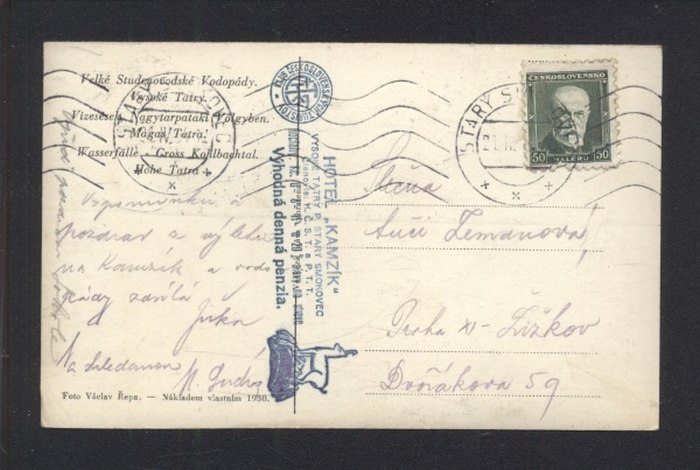 Velké Studenovodské Vodopády.
Vysoké Tatry.
Vizesések Nagytarpataki Völgyben.
Magas Tatra.
Wasserfälle Gross Kohlbachtal.
Hohe Tatra
KLUB ČESKOSLOVENSKÝCH TURISTOV
STARÝ SMOKOVEC
21.
STARÝ S
ČESKOSLOVENSKO
50 HALÉŘŮ 50
HOTEL „KAMZÍK“
VYSOKÉ TATRY P. STARÝ SMOKOVEC
K. Č. S. T. B. P. T. T.
Výhodná denná penzia.
Vzpomínku a
pozdrav z výletu
na Kamzík a vodo
pády zasílá
Jirka
Na shledanou
Slečna
Zemanová
Praha XI - Žižkov
Dvořákova 59
Foto Václav Řepa. — Nákladem vlastním 1930.